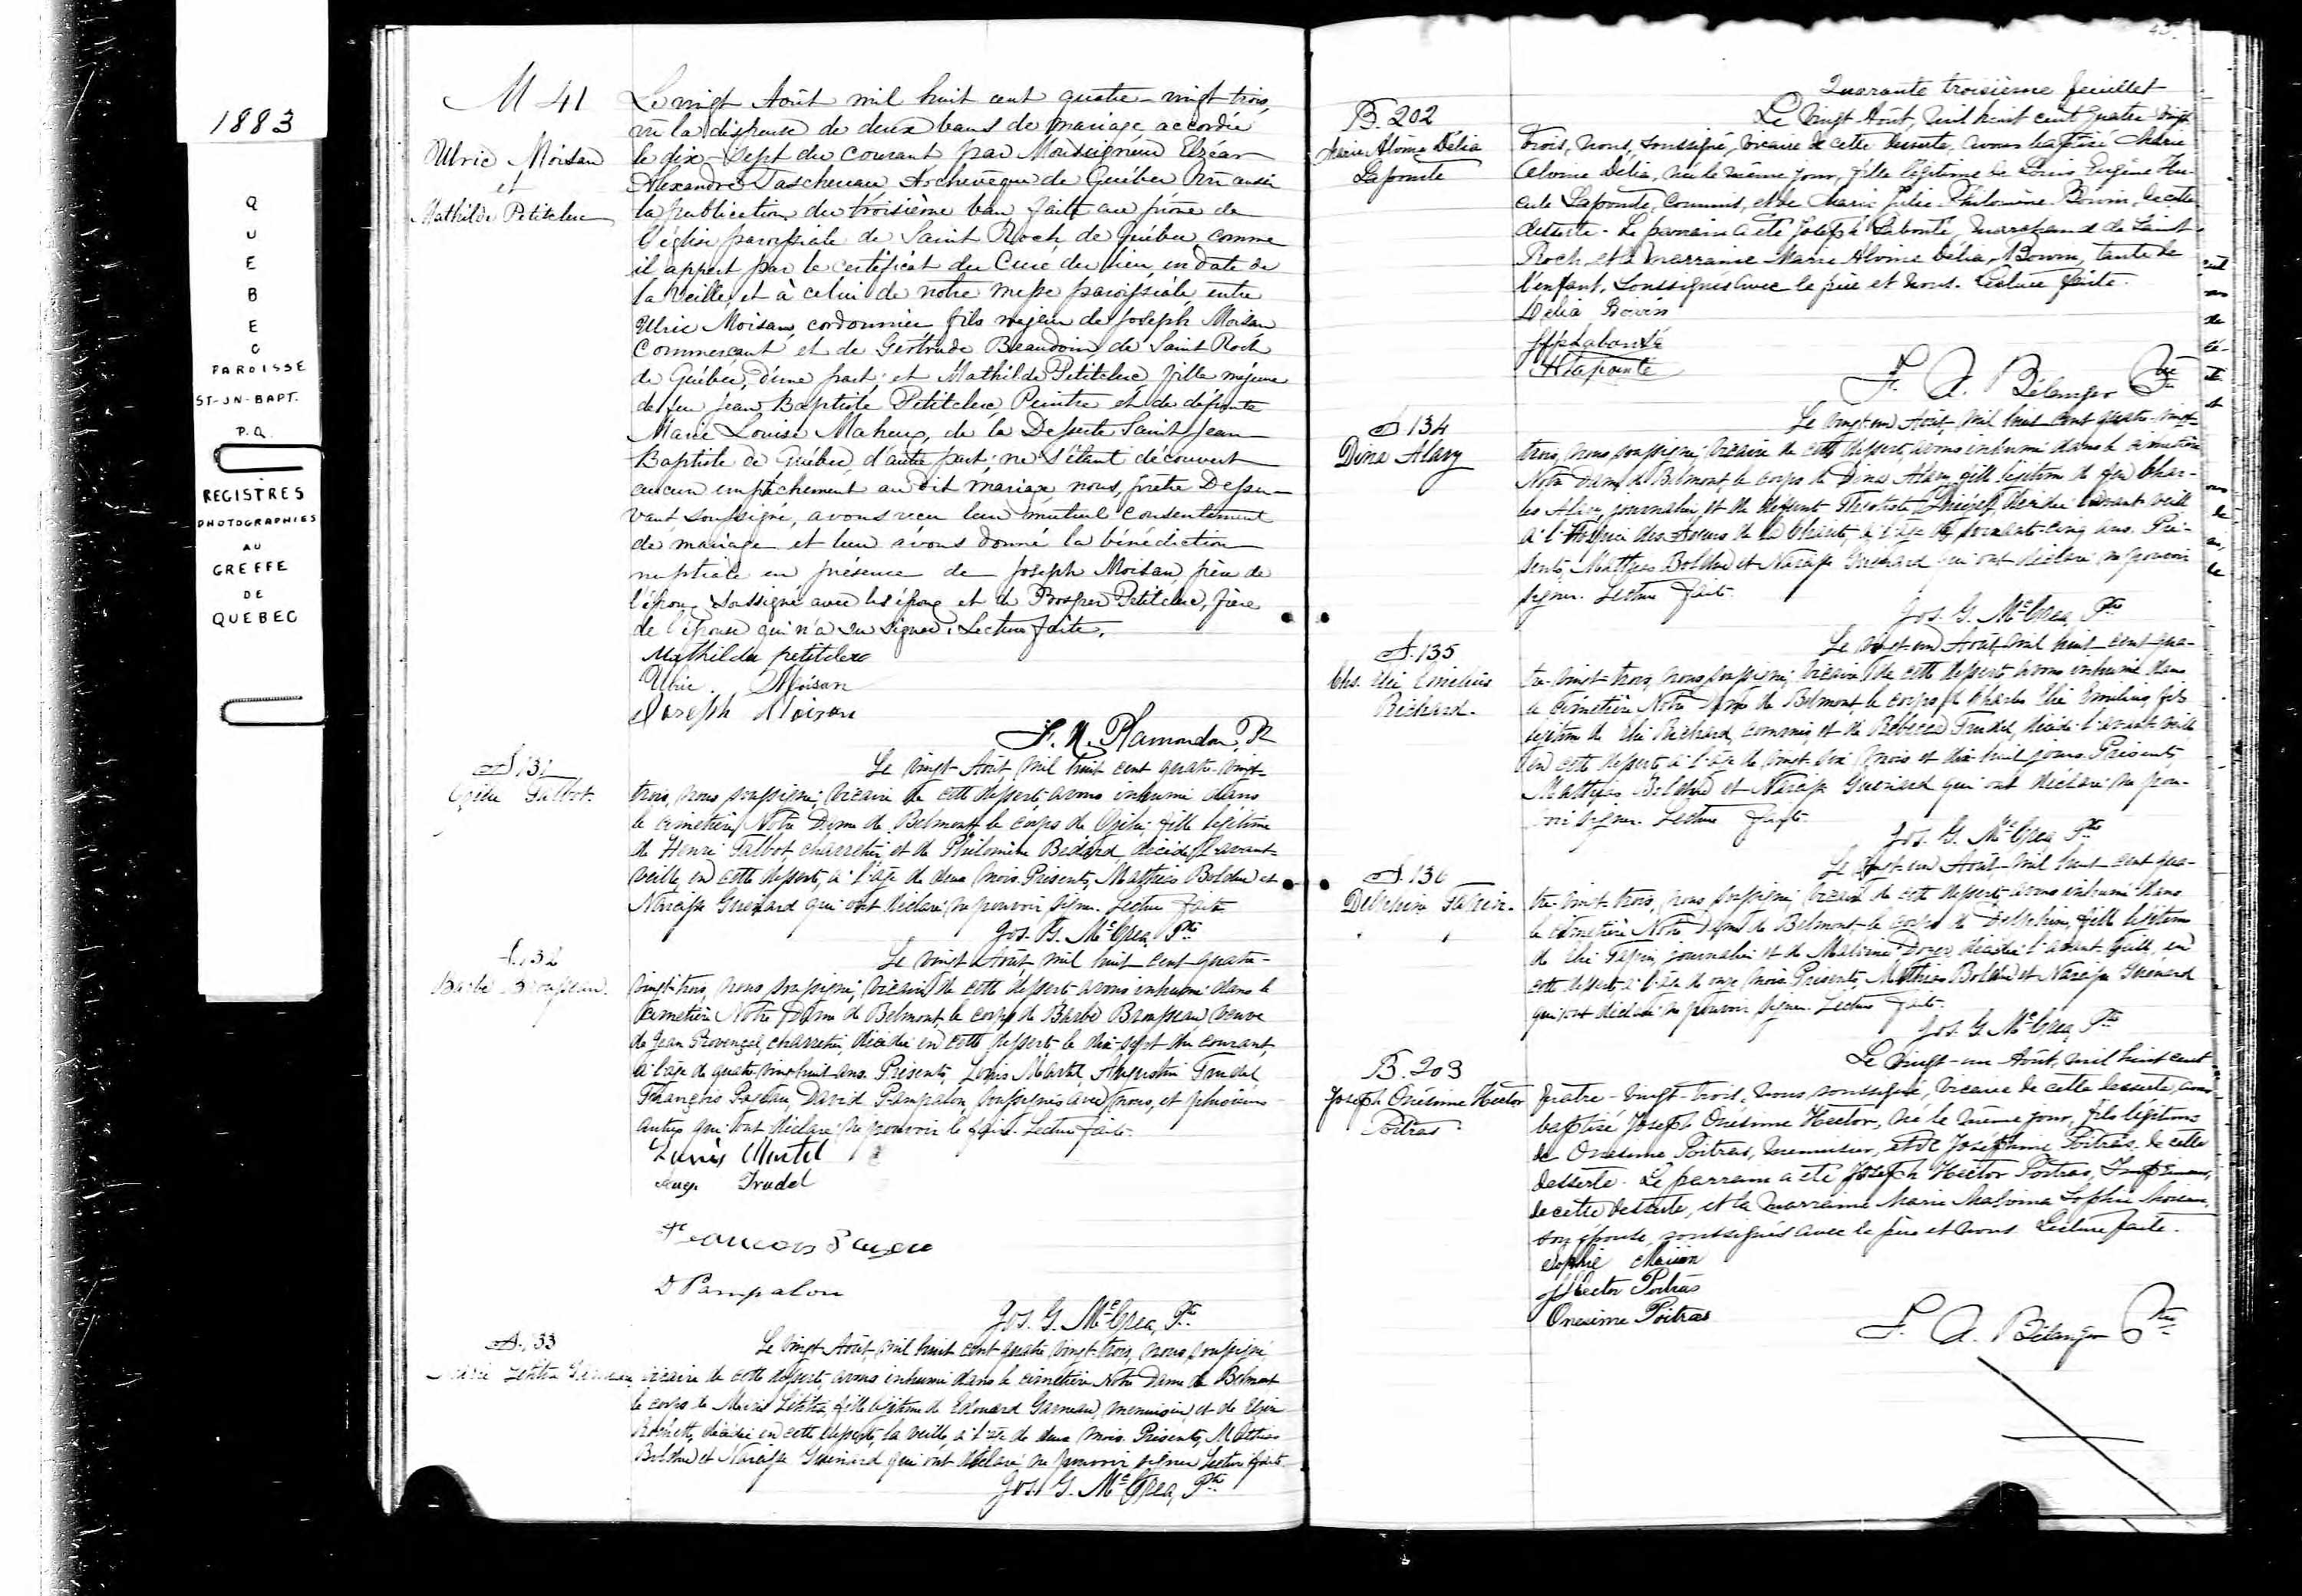 1883
QUEBEC
PAROISSE
ST-JN-BAPT.
P.Q.
REGISTRES
PHOTOGRAPHIES
AU
GREFFE
DE
QUEBEC
M 41
Ulric Moisan
et
Mathilde Petitclerc
Le vingt Août mil huit cent quatre-vingt trois,
vu la dispense de deux bans de mariage accordée
le dix-sept du courant par Monseigneur Elzéar
Alexandre Taschereau, Archevêque de Québec vu aussi
la publication du troisième ban faite au prône de
l'église paroissiale de Saint Roch de Québec comme
il appert par le certificat du Curé du lieu, en date de
la veille, et à celui de notre messe paroissiale, entre
Ulric Moisan, cordonnier, fils majeur de Joseph Moisan
Commerçant et de Gertrude Beaudoin, de Saint Roch
de Québec, d'une part; et Mathilde Petitclerc fille majeure
de feu Jean Baptiste Petitclerc, Peintre et de défunte
Marie Louise Maheux, de la Desserte Saint Jean
Baptiste de Québec, d'autre part; ne s'étant découvert
aucun empêchement au dit mariage, nous, prêtre Desser-
vant soussigné, avons reçu leur mutuel consentement
de mariage et leur avons donné la bénédiction
nuptiale en présence de Joseph Moisan, père de
l'époux soussigné avec les époux et de Prosper Petitclerc, frère
de l'épouse qui n'a su signer. Lecture faite.
Mathilda petitclerc
Ulric Moisan
Joseph Moisan
F. X. Plamondon, Ptr
S 131
Talbot.
Le vingt Août mil huit cent quatre-vingt-
trois, nous soussigné, vicaire de cette desserte, avons inhumé dans
le cimetière Notre Dame de Belmont le corps de fille légitime
de Henri Talbot, charretier, et de Philomène Bédard, décédée l'avant-
veille, en cette desserte, à l'âge de deux mois. Présents, Mathias Bolduc et
Narcisse Guénard qui ont déclaré ne pouvoir signer. Lecture faite.
Jos. G. McCrea, Ptre
S. 132
Barbe Brousseau.
Le vingt Août mil huit cent quatre-
vingt-trois, nous soussigné, vicaire de cette desserte avons inhumé dans le
cimetière Notre Dame de Belmont, le corps de Barbe Brousseau, veuve
de Jean Provençal, charretier, décédée en cette desserte le dix-sept du courant,
à l'âge de quatre-vingt-huit ans. Présents, Louis Martel, Augustin Trudel,
François David Pampalon, soussignés avec nous, et plusieurs
autres qui ont déclaré ne pouvoir le faire. Lecture faite.
Louis Martel
Aug. Trudel
Francois
D Pampalon
Jos. G. McCrea, Ptre
S. 133
Marie Létitia Garneau
Le vingt Août, mil huit cent quatre vingt-trois, nous soussigné,
vicaire de cette desserte, avons inhumé dans le cimetière Notre Dame de Belmont
le corps de Marie Létitia, fille légitime de Edouard Garneau, menuisier, et de
décédée en cette desserte, la veille, à l'âge de deux mois. Présents, Mathias
Bolduc et Narcisse Guénard qui ont déclaré ne pouvoir signer. Lecture faite.
Jos. G. McCrea, Ptre
Quarante troisième feuillet
B. 202
Marie Alvina Délia
Lapointe
Le vingt Août, mil huit cent quatre vingt
trois, nous, soussigné, vicaire de cette desserte, avons baptisé Marie
Alvina Délia, née le même jour, fille légitime de Louis Eugène Her-
cule Lapointe, commis, et de Marie Julie Philomène Boivin, de cette
desserte. Le parrain a été Joseph Labonté, marchand de Saint
Roch, et la marraine Marie Alvina Délia Boivin, tante de
l'enfant, soussignés avec le père et nous. Lecture faite.
Délia Boivin
Jos Labonté
H Lapointe
F. A. Bélanger Ptre
S 134
Dina Alary
Le vingt-un Août, mil huit cent quatre-vingt-
trois, nous soussigné, vicaire de cette desserte, avons inhumé dans le cimetière
Notre Dame de Belmont, le corps de Dina Alary, fille légitime de feu Char-
les Alary, journalier, et de défunte Théotiste décédée l'avant-veille
à l'Hospice des Soeurs de la Charité, à l'âge de cinq ans. Pré-
sents, Mathias Bolduc et Narcisse Guénard qui ont déclaré ne pouvoir
signer. Lecture faite.
Jos. G. McCrea, Ptre
S. 135
Chs. Elie Emelius
Richard.
Le vingt-un Août, mil huit cent qua-
tre-vingt-trois, nous soussigné, vicaire de cette desserte, avons inhumé dans
le cimetière Notre Dame de Belmont, le corps de Charles Elie Emelius, fils
légitime de Elie Richard, commis, et de Rébecca Trudel, décédé l'avant-veille
en cette desserte, à l'âge de vingt-six mois et dix huit jours. Présents,
Mathias Bolduc et Narcisse Guénard qui ont déclaré ne pou-
voir signer. Lecture faite.
Jos. G. McCrea, Ptre
S. 136
Delphine Tapin.
Le vingt-un Août mil huit cent qua-
tre-vingt-trois, nous soussigné, vicaire de cette desserte, avons inhumé dans
le cimetière Notre Dame de Belmont, le corps de Delphine, fille légitime
de Elie Tapin, journalier et de décédée l'avant-veille, en
cette desserte à l'âge de onze mois. Présents, Mathias Bolduc et Narcisse Guénard
qui ont déclaré ne pouvoir signer. Lecture faite.
Jos. G. McCrea, Ptre
B. 203
Joseph Onésime Hector
Poitras
Le vingt-un Août, mil huit cent
quatre-vingt-trois, nous, soussigné, vicaire de cette desserte, avons
baptisé Joseph Onésime Hector, né le même jour, fils légitime
de Onésime Poitras, menuisier, et de Joséphine Poitras, de cette
desserte. Le parrain a été Joseph Hector Poitras, Imprimeur,
de cette desserte, et la marraine Marie Malvina Sophie Moisan,
son épouse, soussignés avec le père et nous. Lecture faite.
Sophie Moisan
J Hector Poitras
Onesime Poitras
F. A. Bélanger Ptre